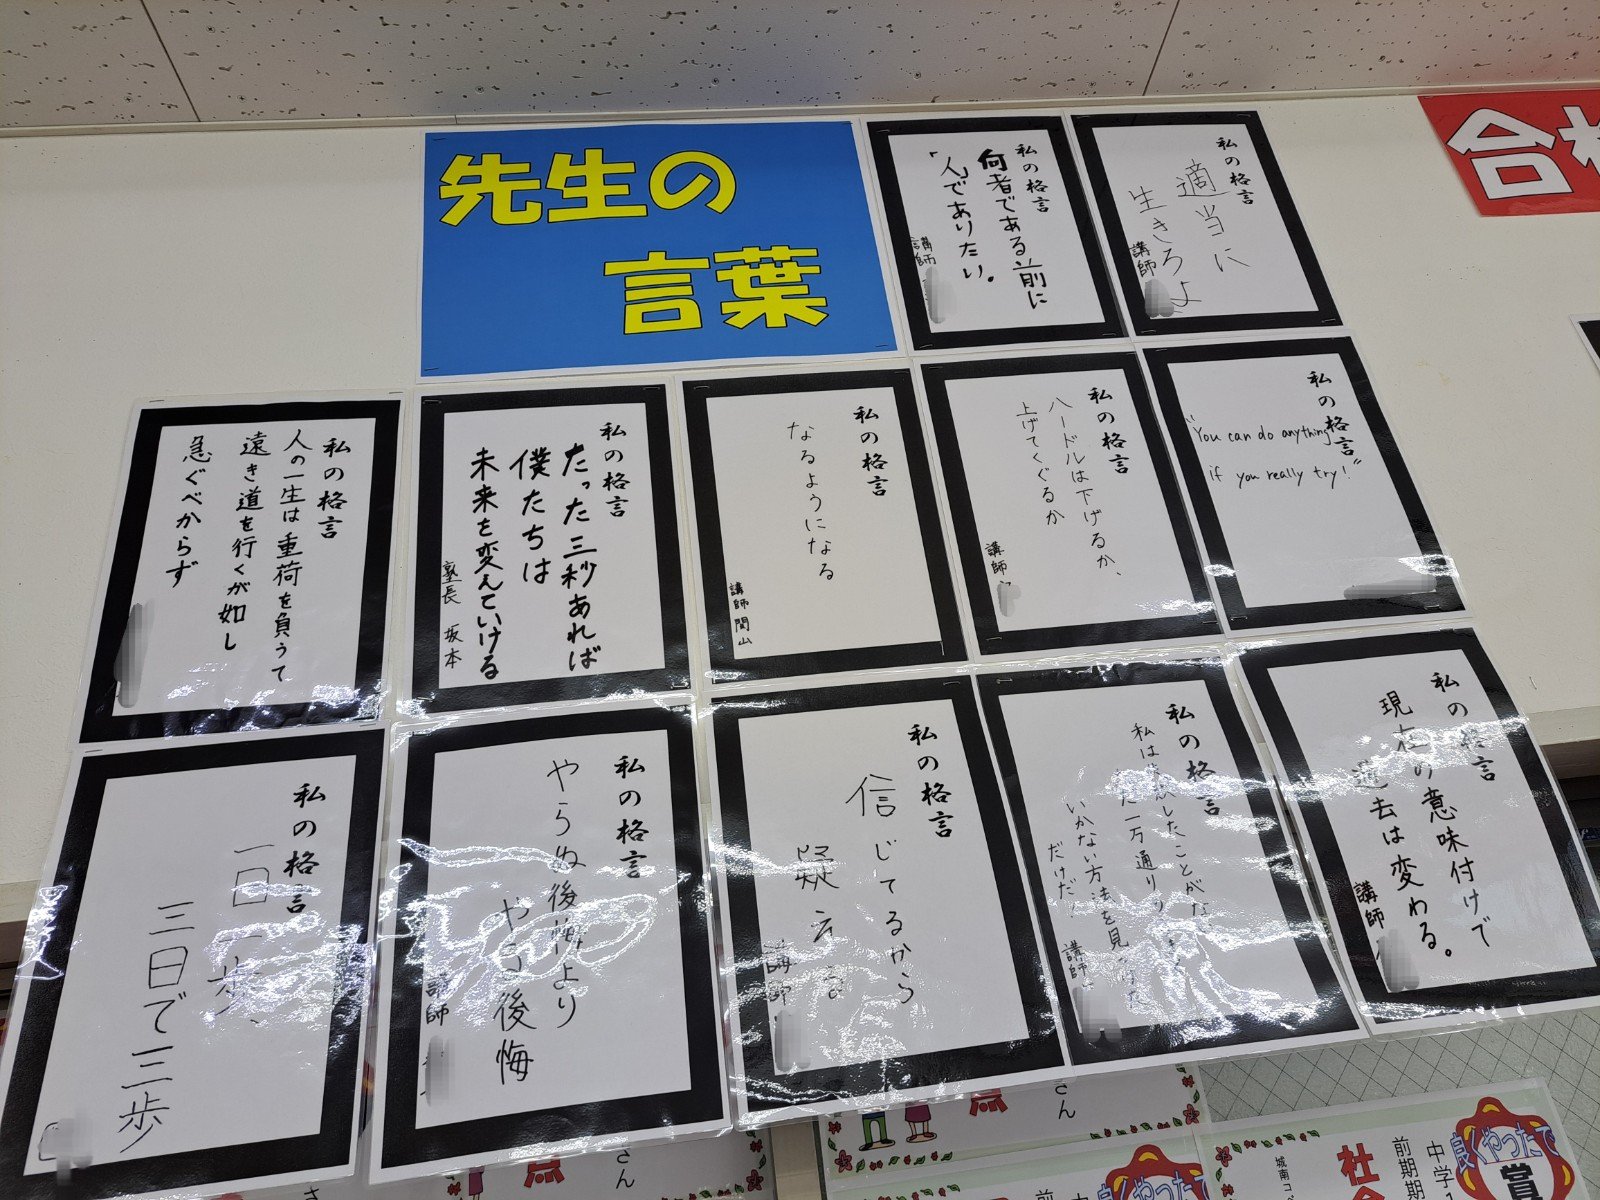 先生の
言葉
私の格言
何者である前に
「人」でありたい。
講師
私の格言
適当に
生きろよ
講師
合格
私の格言
人の一生は重荷を負うて
遠き道を行くが如し
急ぐべからず
私の格言
たった三秒あれば
僕たちは
未来を変えていける
塾長 坂本
私の格言
なるようになる
講師 関山
私の格言
ハードルは下げるか、
上げてくぐるか
講師
私の格言
"You can do anything
if you really try!"
私の格言
一日一歩、
三日で三歩
私の格言
やらぬ後悔より
やる後悔
講師
私の格言
信じてるから
疑える
講師
私の格言
私は失敗したことがない
ただ一万通りの
いかない方法を見つけた
だけだ
講師
私の格言
現在の意味付けで
過去は変わる。
講師
点
さん
さん
良くやったで
賞
中学
前期期
社会
城南コベ
前
中
良くやったで